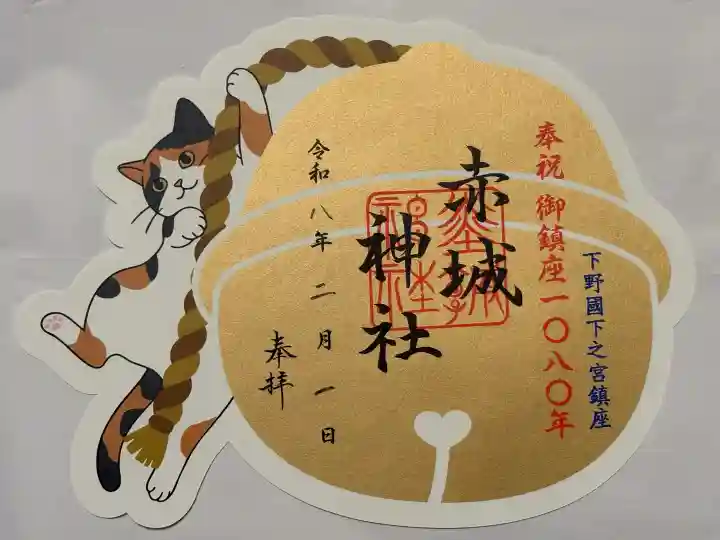 奉祝 御鎮座一〇八〇年
下野國下之宮鎮座
赤城
神社
令和八年二月一日
奉拝